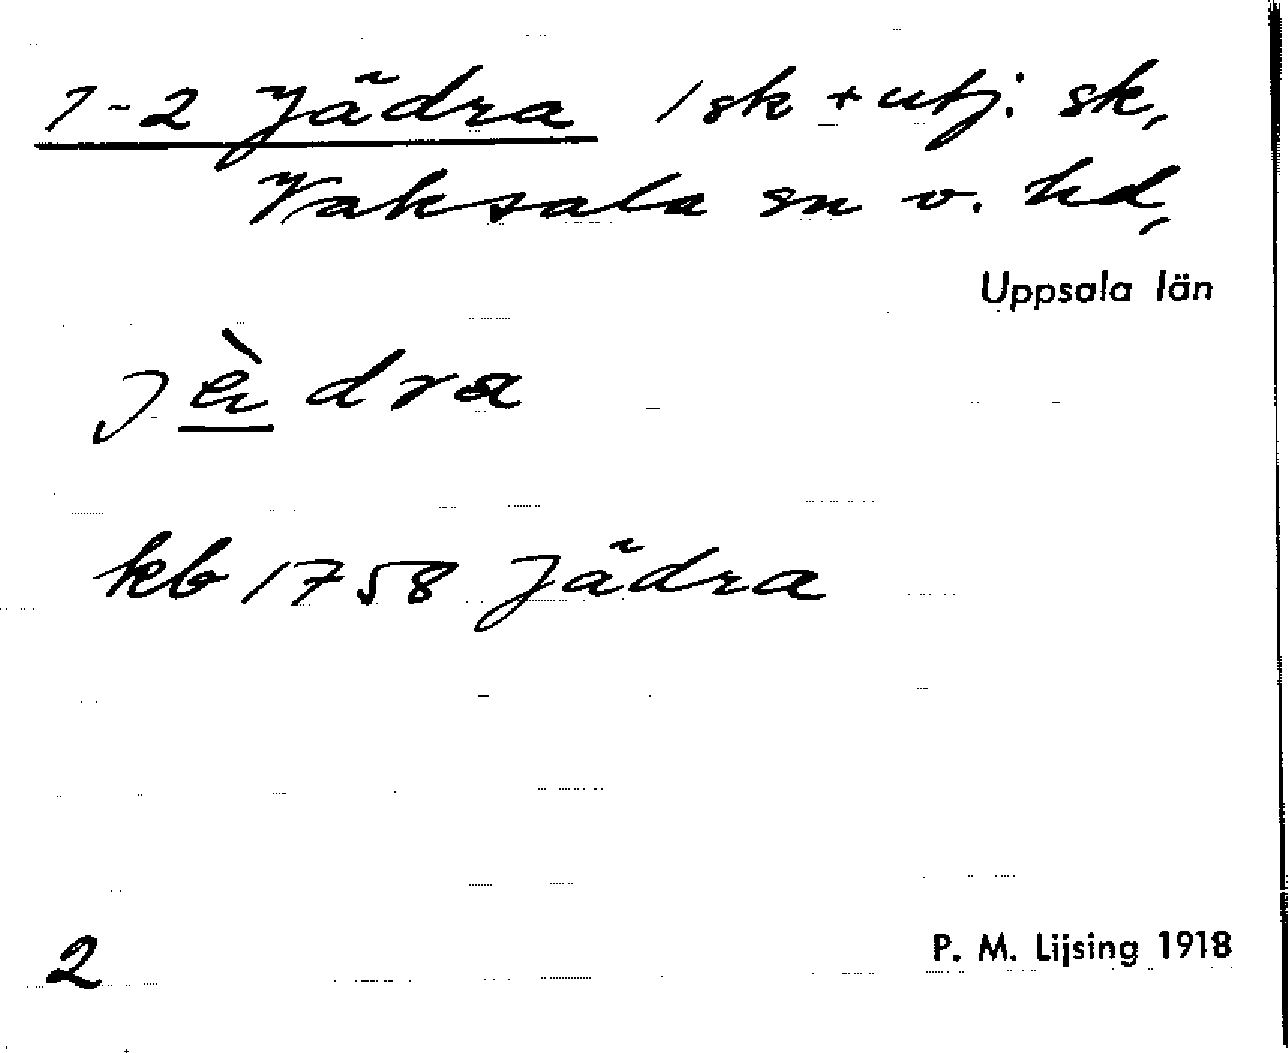 1-2 Jädra 1 sk + utj. sk,
Vaksala sn o. hd,
Uppsala län
jèdra
kb 1758 Jädra
2
P. M. Lijsing 1918